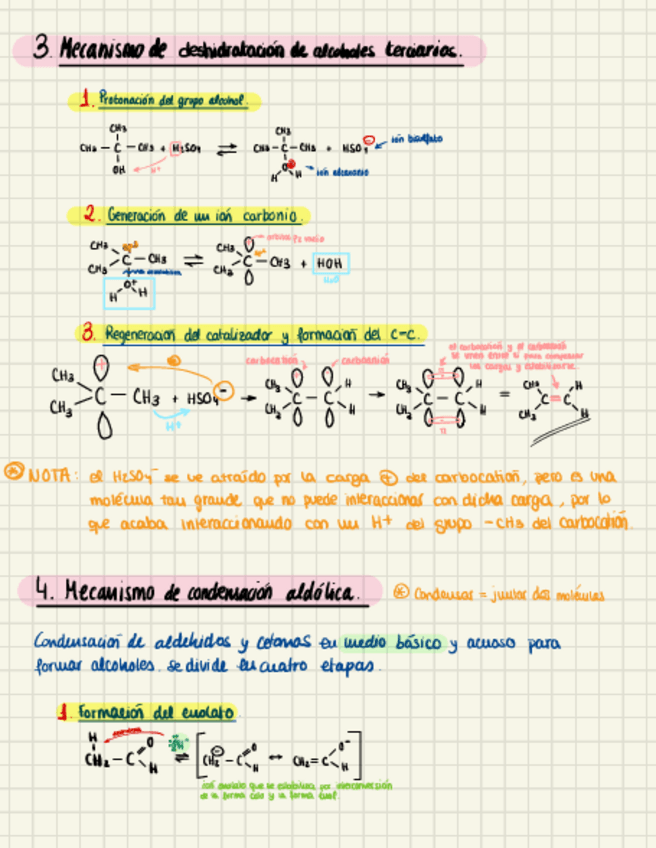 3. Mecanismo de deshidratación de alcoholes terciarios.
1. Protonación del grupo alcohol.
CH3
CH3 — C — CH3 + H2SO4 ⇌ CH3 — C — CH3 + HSO4 ⊖ ión bisulfato
OH H+
ión alcanonio
2. Generación de un ión carbonio.
CH3
CH3 C — CH3 ⇌ CH3 C — CH3 + HOH
orbital Pz vacío
H O+ H
H2O
3. Regeneración del catalizador y formación del C=C.
el carbocatión y el carbanión
se unen entre sí para compensar
sus cargas y estabilizarse.
carbocatión carbanión
CH3 CH3 — CH3 + HSO4 ⊖ → C — C → C — C = C = C
H+
π
NOTA: el HSO4⁻ se ve atraído por la carga ⊕ del carbocatión, pero es una
molécula tan grande que no puede interaccionar con dicha carga, por lo
que acaba interaccionando con un H+ del grupo -CH3 del carbocatión.
4. Mecanismo de condensación aldólica.
Condensar = juntar dos moléculas
Condensación de aldehídos y cetonas en medio básico y acuoso para
formar alcoholes. Se divide en cuatro etapas.
1. Formación del enolato.
H
CH2 — C O H ⇌ [ CH2 ⊖ — C O H ↔ CH2 = C O⁻ H ]
ión enolato que se estabiliza por interconversión
de la forma ceto y la forma enol.